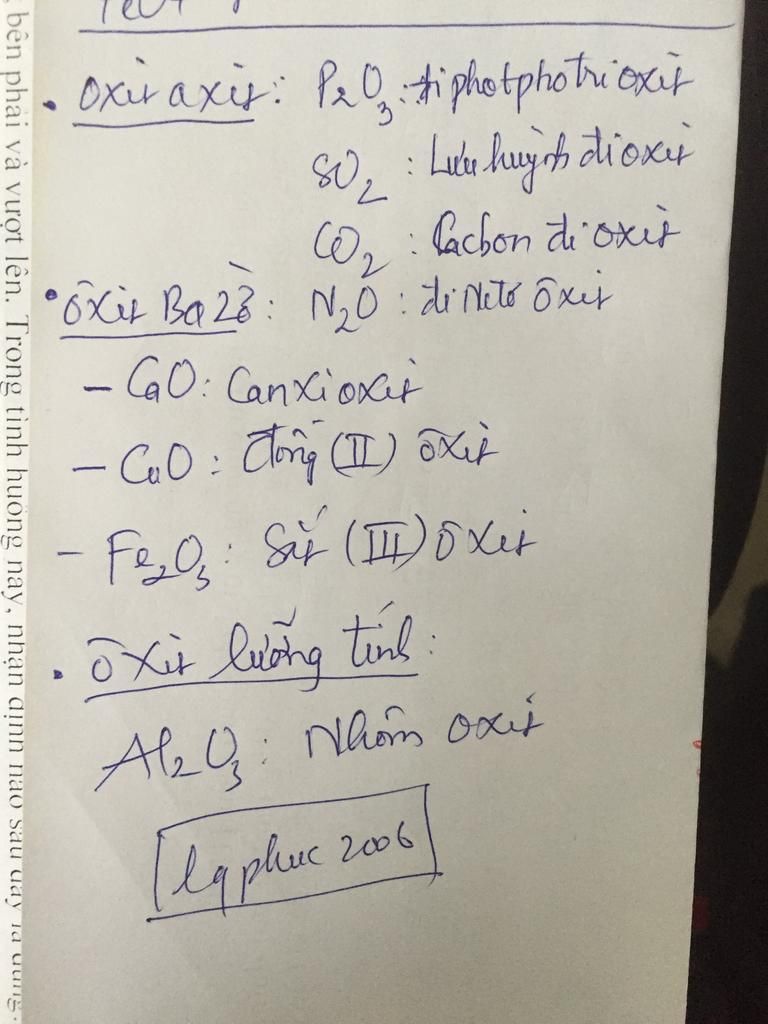 • Oxit axit: P2O3: điphotpho trioxit
SO2: Lưu huỳnh đioxit
CO2: Cacbon đi oxit
• ôxit Bazơ: N2O: đi Nitơ ôxit
- CaO: Canxi oxit
- CuO: Đồng (II) ôxit
- Fe2O3: Sắt (III) ôxit
• ôxit lưỡng tính:
Al2O3: Nhôm oxit
lqphuc 2006
bên phải và vượt lên. Trong tình huống này, nhận định nào sau đây là đúng.